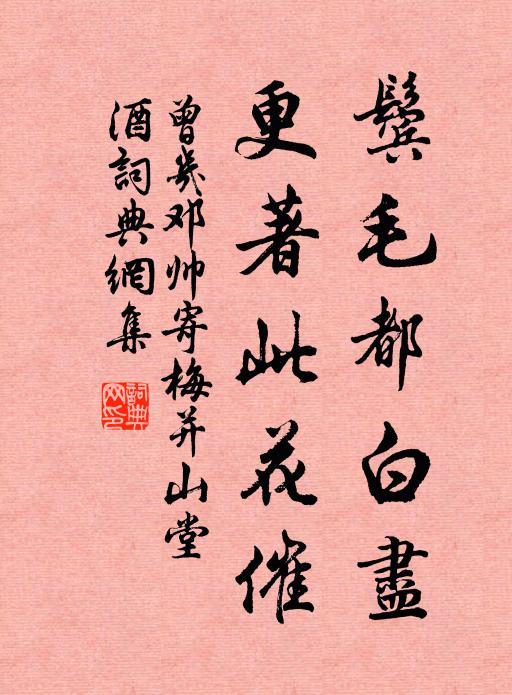 鬓毛都白盡
更著此花催
曾幾邓帅寄梅并山堂
酒詞典網集
詞典網印